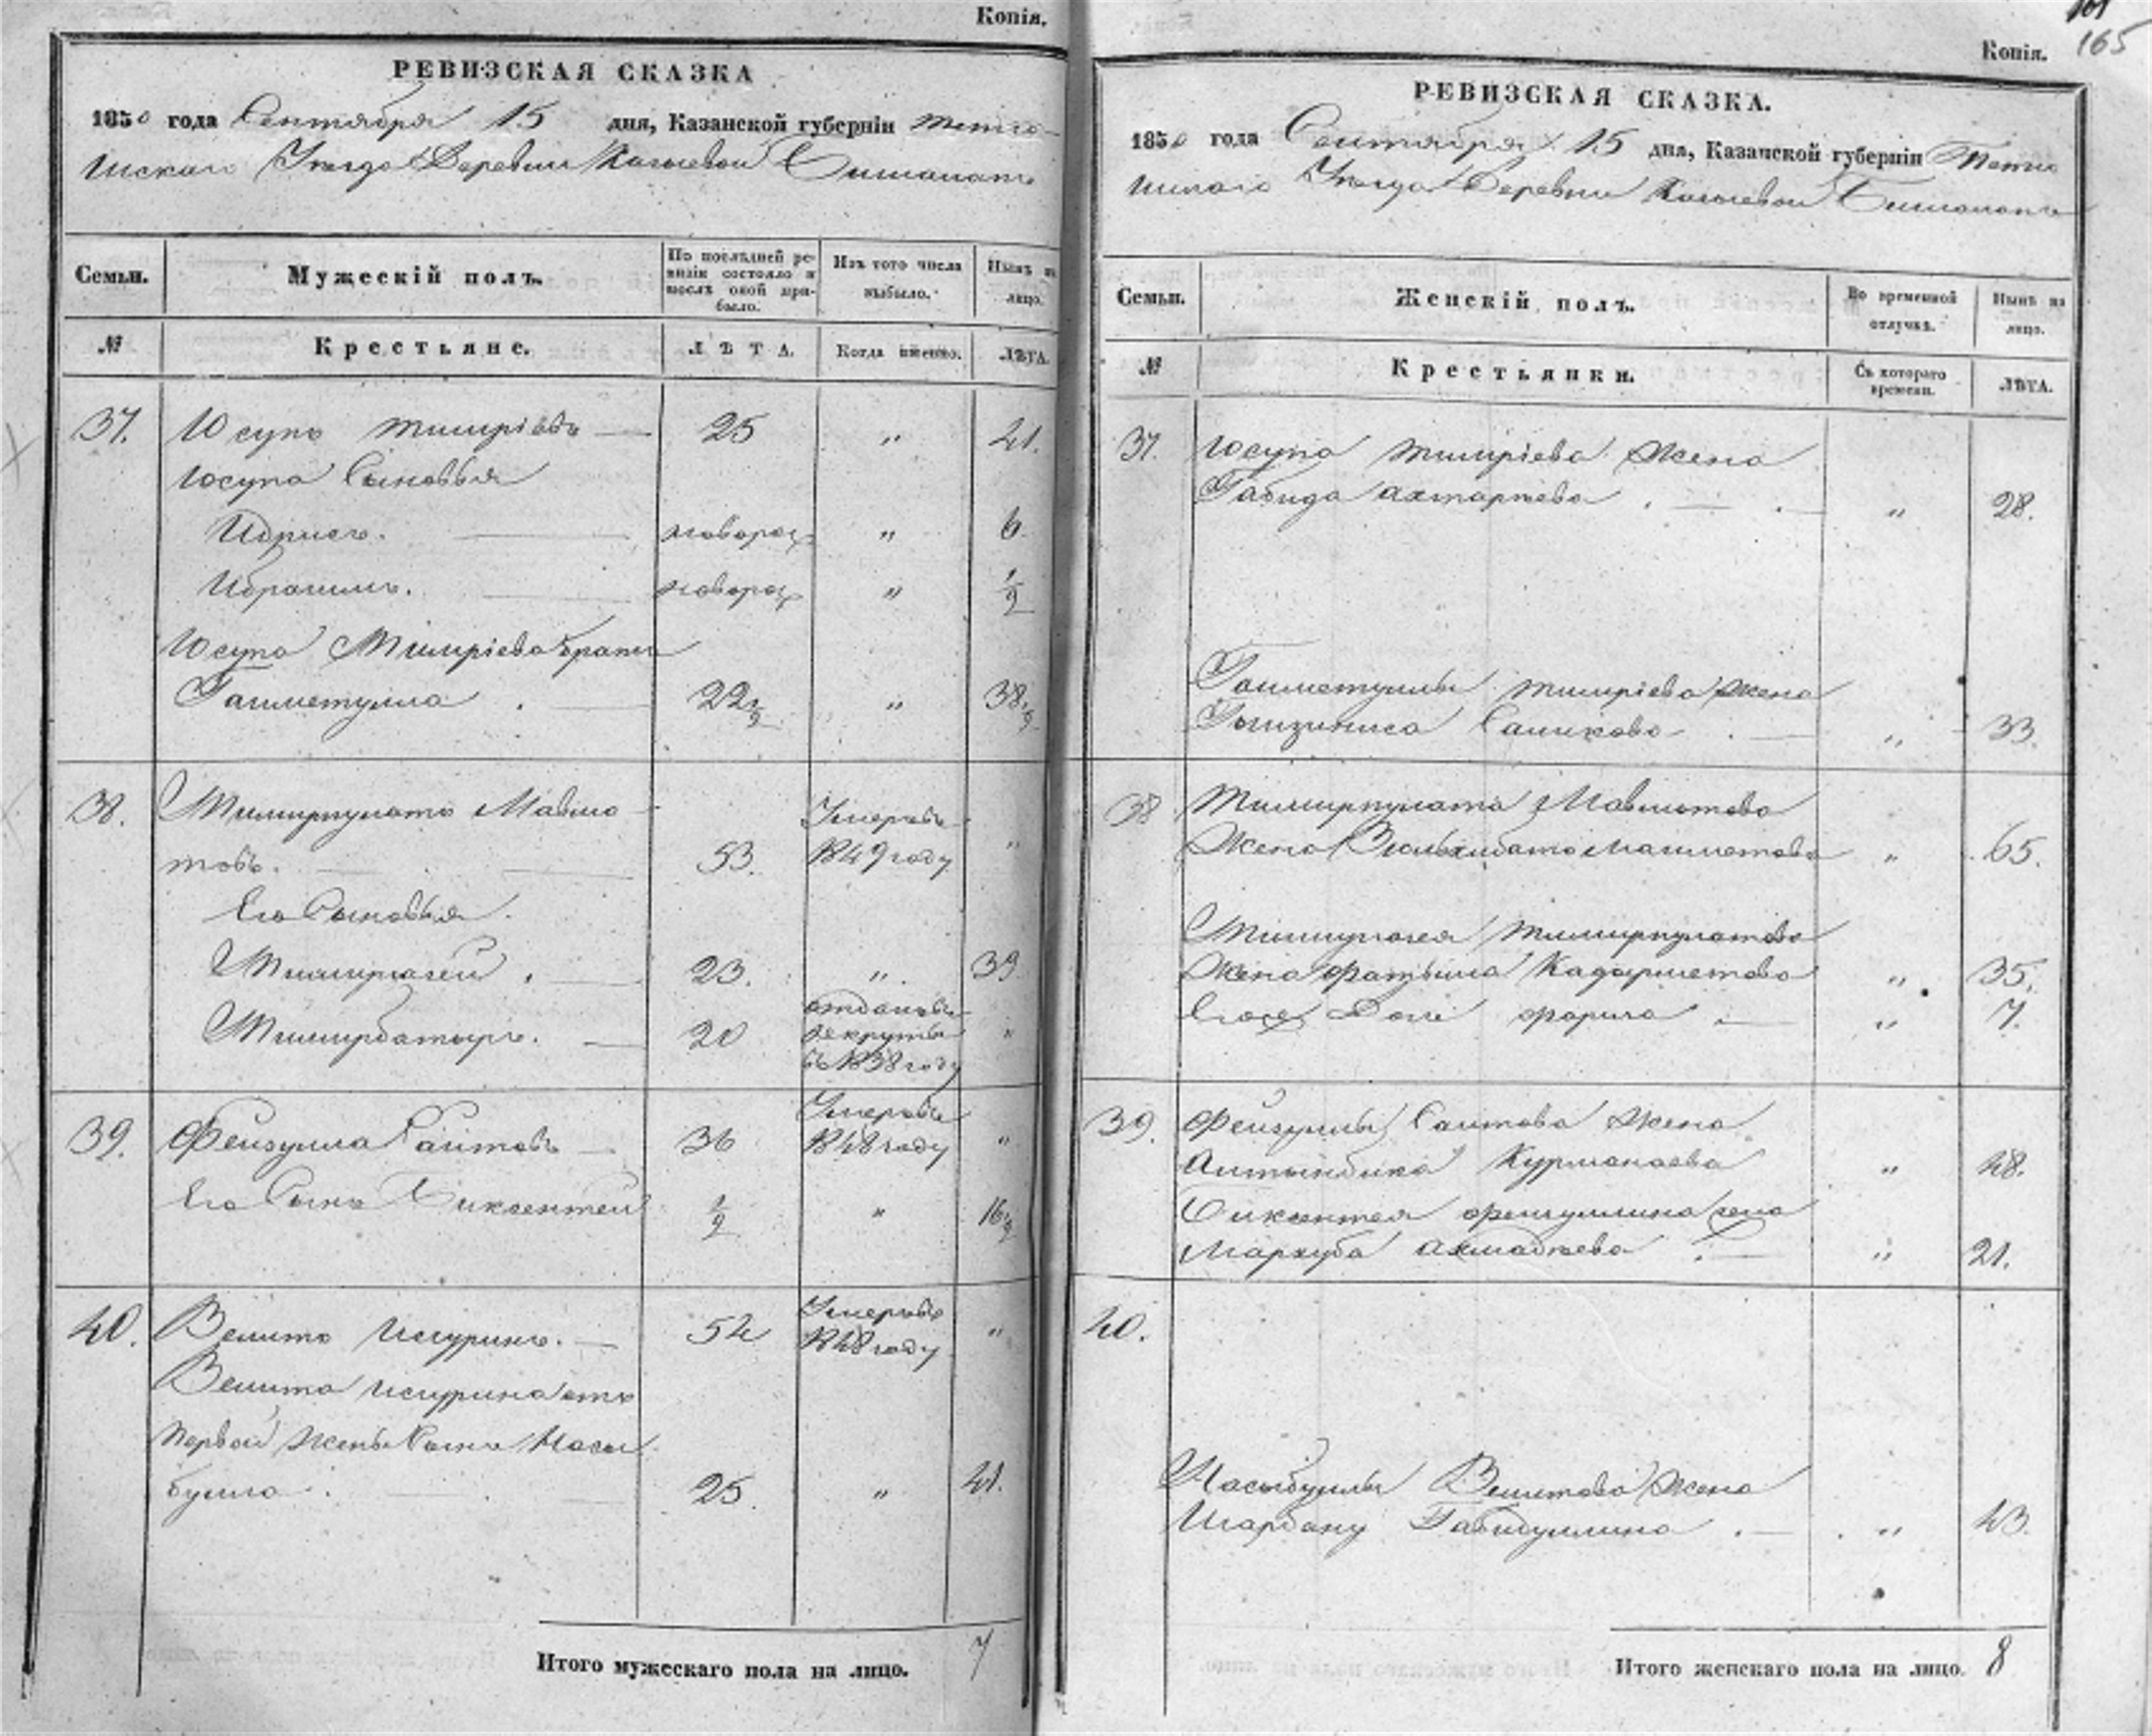 Копія.
РЕВИЗСКАЯ СКАЗКА
1850 года Сентября 15 дня, Казанской губерніи Тетю-
шскаго Уезда Деревни
Семьи. Мужескій полъ. По послѣдней ревизіи состояло и послѣ оной прибыло. Изъ того числа выбыло. Нынѣ на лицо.
№ Крестьяне. ЛѢТА. Когда именно. ЛѢТА.
37. Юсупъ Тимиріевъ 25 „ 41.
Юсупа Сыновья
Идрисъ. новорож „ 6.
Ибрагимъ. новорож „ 1/2
Юсупа Тимиріева братъ
Гайметулла 22 1/2 „ 38 1/2
38. Тимирпулатъ Мавлю
товъ. 53. Умеръ въ 1849 году „
Его Сыновья.
Тимиргалей 23. „ 39
Тимирбатыръ. 20 отданъ въ рекруты въ 1838 году „
39. Фейзулла Саитовъ 36 Умеръ въ 1848 году „
Его Сынъ Биксентей 1/2 „ 16 1/2
40. Велитъ 54 Умеръ въ 1848 году „
Велита отъ
первой жены Сынъ Насы
булла 25. „ 41.
Итого мужескаго пола на лицо. 7
165
Копія.
РЕВИЗСКАЯ СКАЗКА.
1850 года Сентября 15 дня, Казанской губерніи Тетю
шскаго Уезда Деревни
Семьи. Женскій полъ. Во временной отлучкѣ. Нынѣ на лицо.
№ Крестьянки. Съ котораго времени. ЛѢТА.
37. Юсупа Тимиріева Жена
Габида „ 28.
Гайметуллы Тимиріева жена
Садикова „ 33.
38 Тимирпулата Мавлютова
Жена Маметова „ 65.
Тимиргалея Тимирпулатова
Жена Фатыма Кадырметова „ 35.
Ево Дочь „ 7.
39. Фейзуллы Саитова Жена
Алтынбика Курманаева „ 48.
Биксентея Фейзуллина жена
Мархуба Ахмадѣева „ 21.
40.
Насыбуллы Велитова Жена
Шарбану Габидуллина „ 43.
Итого женскаго пола на лицо. 8